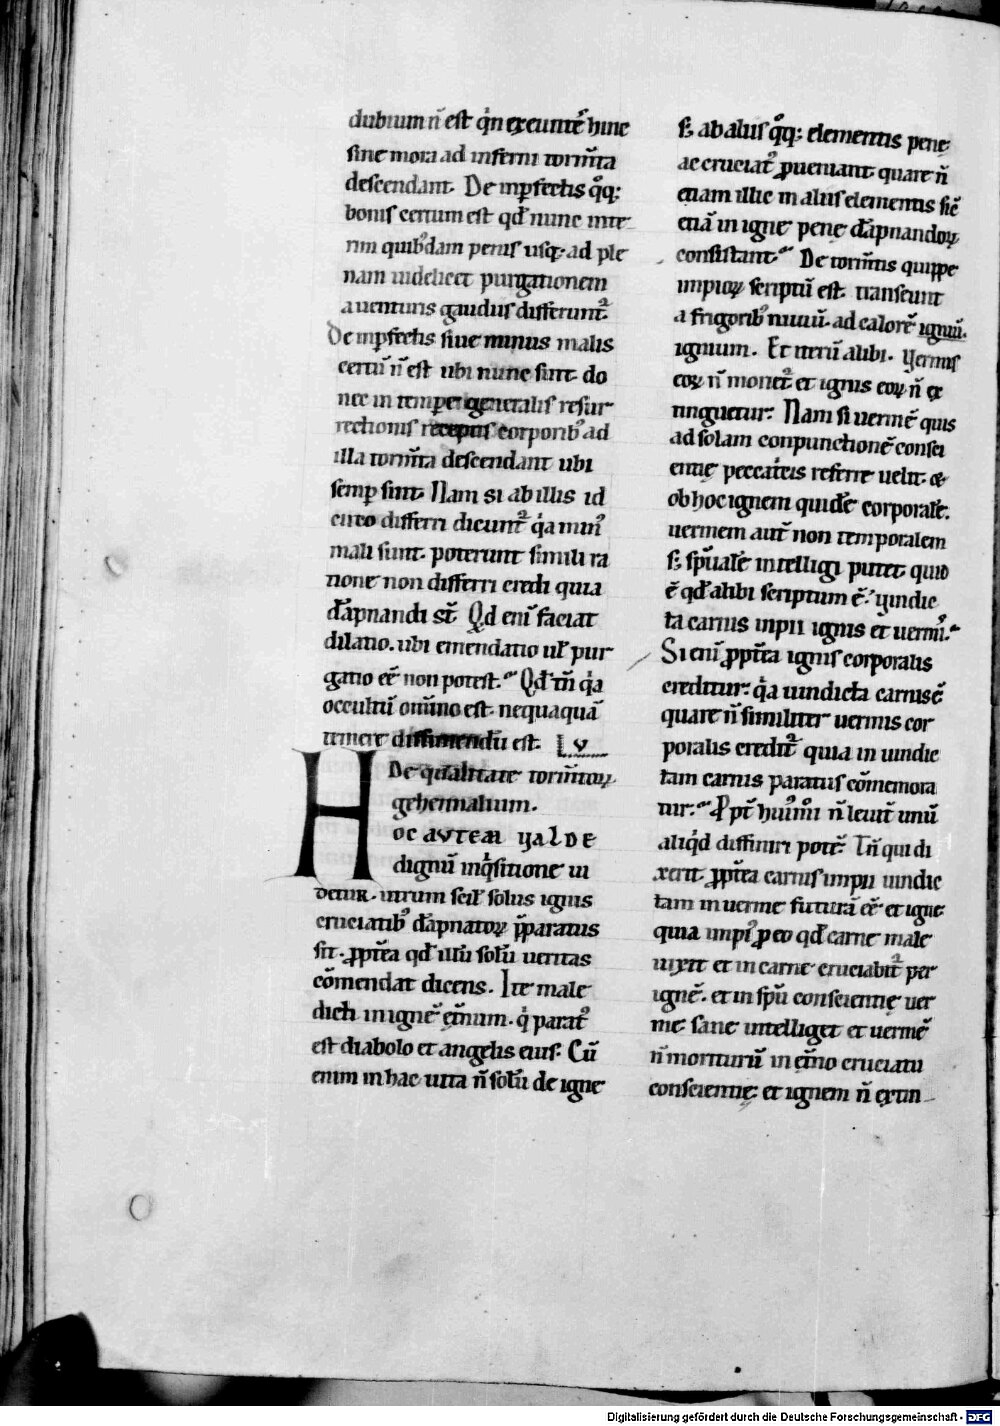 dubium n̄ est qͥn exeunteˢ hinc
sine mora ad inferni torm̄ta
descendant. De inꝑfectis qͦq;
bonis certum est qd̄ nunc inte-
rim quibꝰdam penis usq; ad ple
nam uidelicet purgationem
a uenturis gaudiis differunt᷑.
De inꝑfectis siue minus malis
certū n̄ est ubi nunc sint. do
nec in tempe generalis resur
rectionis receptis corporibꝰ ad
illa torm̄ta descendant ubi
semꝑ sint. Nam si ab illis id
circo differri dicunt᷑ qͥa minꝰ
mali sunt. poterunt simili ra
tione non differri credi quia
dāpnandi st̄. Qd enī faciat
dilatio. ubi emendatio ul̄ pur
gatio eē non potest. Qd̄ tn̄ qͥa
occultū om̄ino est. nequaquā
temere diffiniendū est. LV
De qualitate torm̄toꝝ
gehennalium.
HOC AVTEM VALDE
dignū inqͥsitione ui
DETUR. utrum scil̄ solus ignis
cruciatibꝰ dāpnatoꝝ p̄paratus
sit. ꝓpt̄ea qd̄ illū solū ueritas
cōmendat dicens. Ite male
dicti in ignē et̄num. qͥ paratꝰ
est diabolo et angelis eius. Cū
enim in hac uita n̄ solū de igne
s; ab aliis qͦq; elementis penę
ac cruciatꝰ ꝓueniant. quare n̄
etiam illic in aliis elementis sic̄
etiā in igne penę dāpnandoꝝ
consistant. De torm̄tis quippe
impioꝝ scriptū est. transeunt
a frigoribꝰ niuiū. ad calorē igniū.
ignium. Et iterū alibi. Vermis
eoꝝ n̄ moriet᷑ et ignis eoꝝ n̄ ex
tinguetur. Nam si uermē quis
ad solam conpunctionē consci
entię peccatricis referre uelit. &
ob hoc ignem quidē corporalē.
uermem aut̄ non temporalem
s; sp̄ualē intelligi putet. quid
ē qd̄ alibi scriptum ē. Vindic
ta carnis inpii ignis et uermis.
Si enī ꝓpt̄ea ignis corporalis
creditur. qͥa uindicta carnis ē
quare n̄ similiter uermis cor
poralis credit᷑ quia in uindic
tam carnis paratus cōmemora
tur. Ppt̄ huiꝰmͦi n̄ leuit̄ unū
aliqͥd diffiniri potē. Tn̄ qui di
xerit ꝓpt̄ea carnis impii uindic
tam in uerme futurā eē et igne
quia impiꝰ ꝓ eo qd̄ carne male
uixit et in carne cruciabit᷑ per
ignē. et in sp̄u conscientię uer
me. sane intelliget et uermē
n̄ moriturū in et̄no cruciatu
conscientię. et ignem n̄ extin-
Digitalisierung gefördert durch die Deutsche Forschungsgemeinschaft - DFG